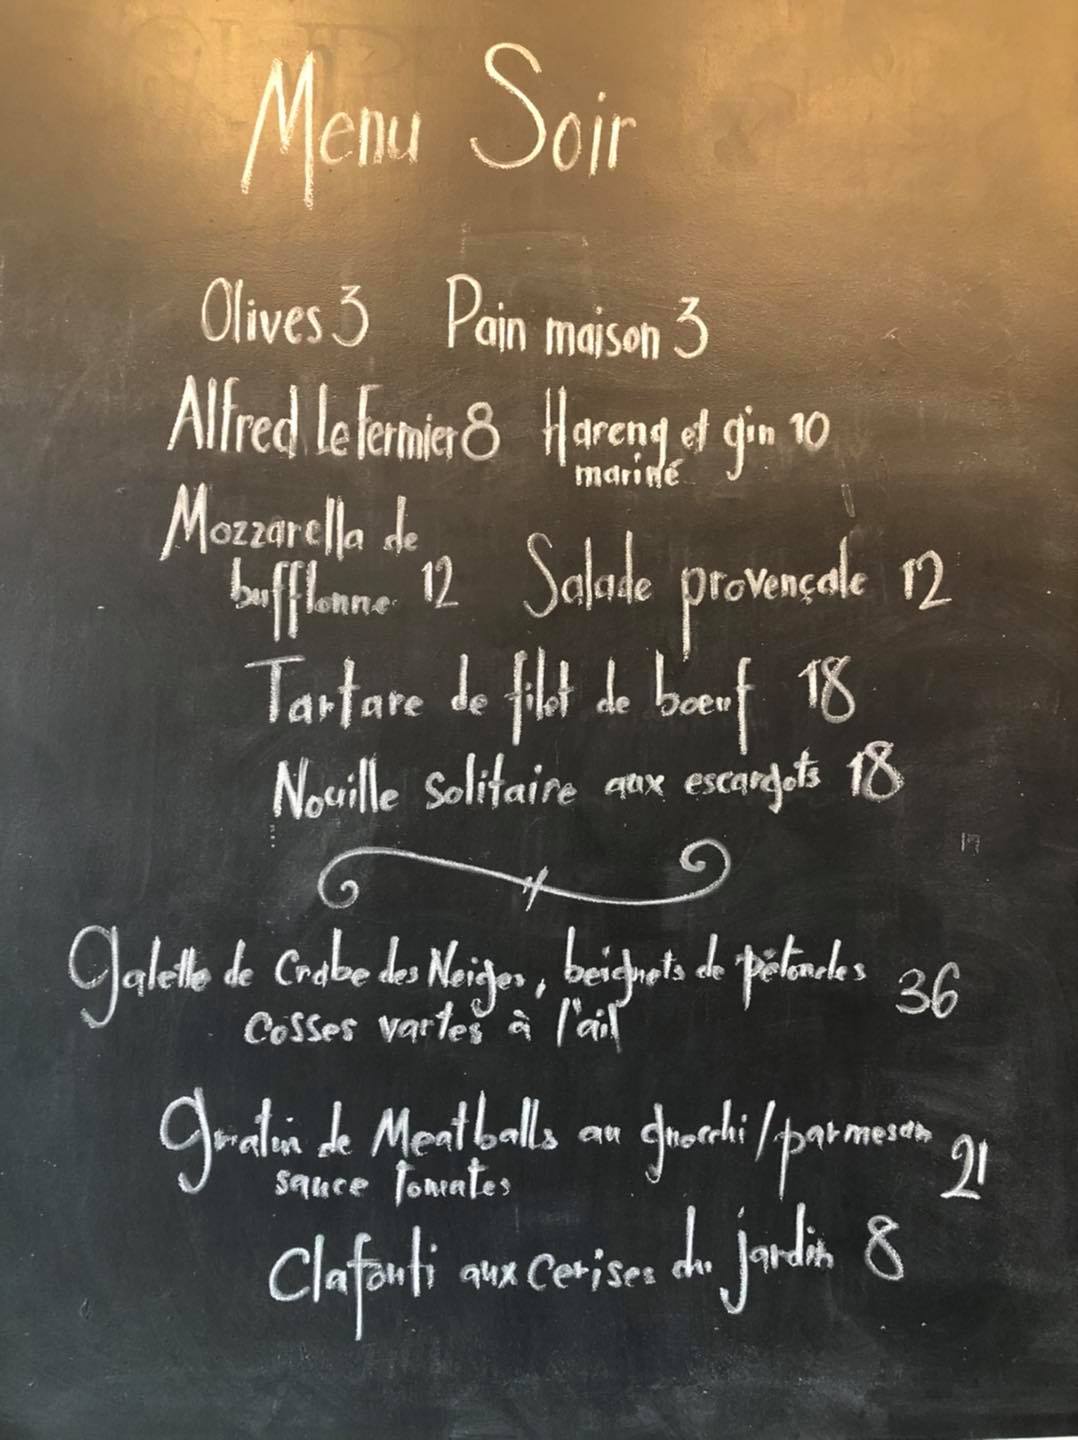 Menu Soir
Olives 3 Pain maison 3
Alfred le Fermier 8 Hareng et gin 10
mariné
Mozzarella de
bufflonne 12 Salade provençale 12
Tartare de filet de boeuf 18
Nouille solitaire aux escargots 18
Galette de Crabe des Neiges, beignets de pétoncles 36
cosses vartes à l'ail
Gratin de Meatballs au gnocchi/parmesan 21
sauce tomates
Clafouti aux cerises du jardin 8